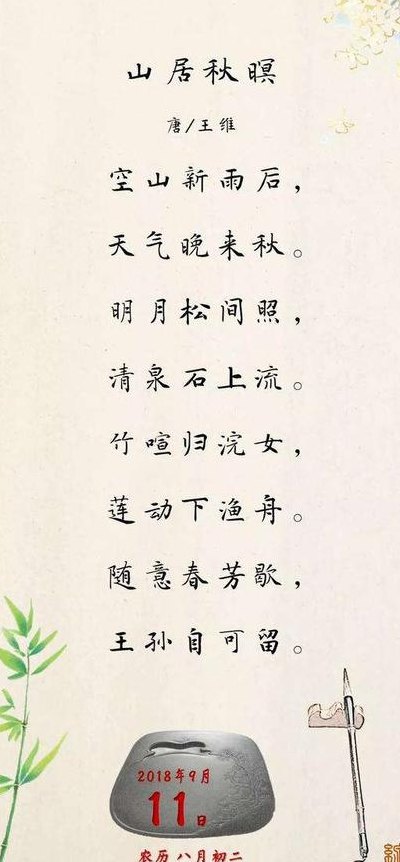 山居秋暝
唐/王维
空山新雨后，
天气晚来秋。
明月松间照，
清泉石上流。
竹喧归浣女，
莲动下渔舟。
随意春芳歇，
王孙自可留。
2018年9月
11日
农历八月初二